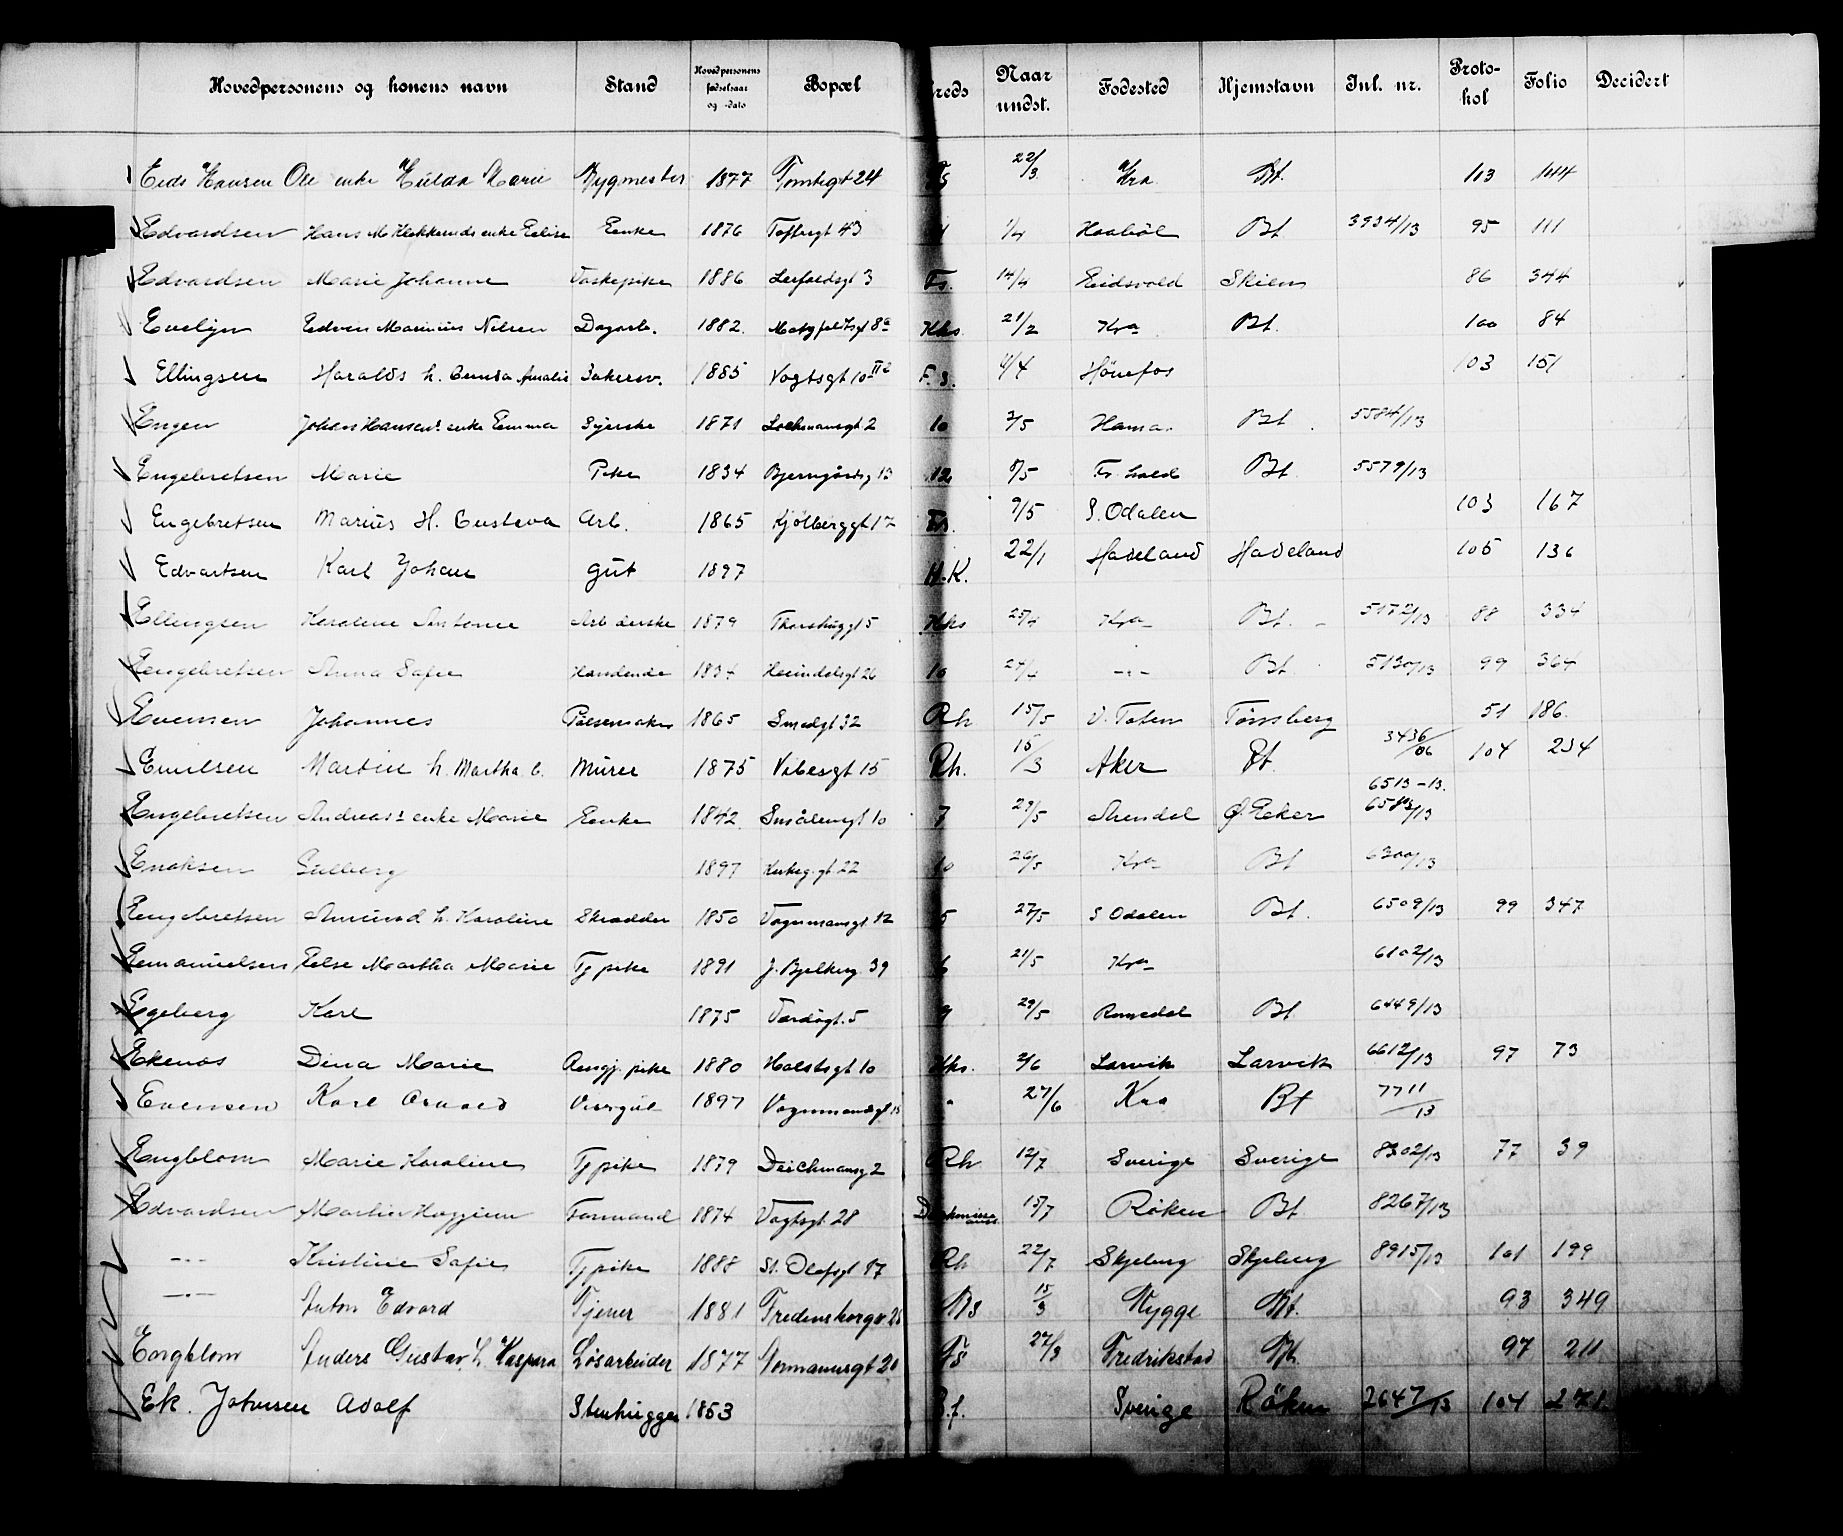 Hovedpersonens og konens navn Stand Hovedpersonens fødselsaar og -dato Bopæl Kreds Naar undst. Fødested Hjemstavn Inl. nr. Proto-kol Folio Decidert
Eids Hansen Ole enke Hulda Marie Bygmester 1877 Tomtegt 24 22/3 Kra Bt. 103
Edvardsen Hans enke Elise Enke 1876 Toftesgt 43 1/4 Haabøl Bt 3934/13 95 111
Edvardsen Marie Johanne Vaskepike 1886 3 Fs. 14/4 Eidsvold Skien 86 344
Evelyn Edvin Marinius Nilsen Dagarb. 1882 8a Kks 21/2 Kra Bt. 100 84
Ellingsen Haralds h. Gunda Amalie 1885 Vogtsgt 10 F.S. 4/4 Hønefos 103 151
Engen Johan Hansens enke Emma Syerske 1871 Lochmannsgt 2 10 Hama. Bt 5584/13
Engebretsen Marie Pike 1834 12 8/5 Fr.hald Bt 5579/13
Engebretsen Marius H. Gustava Arb. 1865 Kjølberggt 17 Fs. 9/5 S. Odalen 103 167
Edvartsen Karl Johan gut 1897 H.K. 22/1 Hadeland Hadeland 105 136
Ellingsen Karoline Antonie Arb.derske 1879 5 Kks 25/4 Kra Bt. 5172/13 88 334
Engebretsen Anna Safie Handlende 1834 Heimdalsgt 26 10 24/4 -"- Bt 5130/13 99 364
Evensen Johannes Pølsemaker 1865 Smedgt 32 Rh 15/5 V. Toten Tønsberg 51 186
Emilsen Martin h. Martha C. Murer 1875 Vibesgt 15 Rh. 15/3 Aker Bt. 3436/06 104 234
Engebretsen Andreas's enke Marie Enke 1842 Smålensgt 10 7 29/5 Arendal Ø. Eker 6513-13. 6583/13
Enoksen Solberg 1897 Kirkeg.gt 22 10 26/5 Kra Bt 6300/13
Engebretsen Amund h. Karoline Skrædder 1850 Vognmansgt 12 5 27/5 S Odalen Bt. 6509/13 99 347
Emanuelsen Else Martha Marie Tj pike 1891 J. Bjelkesg 39 6 21/5 Kra 6102/13
Egeberg Karl 1875 Vardøgt. 5 9 29/5 Romedal Bt 6449/13
Ekenes Dina Marie Rengj. pike 1880 Holstsgt 10 Kks. 2/6 Larvik Larvik 6612/13 97 73
Evensen Karl Visergut 1897 Vognmandsgt 15 " 27/6 Kra Bt 7711/13
Engblom Marie Karoline Tj pike 1879 Deichmansg 2 Rh 12/7 Sverige Sverige 8302/13 77 39
Edvardsen Martin Formand 1874 Vogtsgt 28 15/7 Røken Bt. 8267/13
-"- Kristine Safie Tj pike 1888 St. Olafsgt Rh 22/7 Skjeberg Skjeberg 8915/13 101 199
-"- Anton Edvard Tjener 1881 Fredensborgv 28 15/3 Rygge Bt. 93 349
Engblom Anders Gustav, h. Kaspara Løsarbeider 1877 Normannsgt 20 Fs 27/3 Fredrikstad Bt. 97 211
Ek. Johnsen Adolf Stenhugger 1853 Sverige Røken 2647/13 104 271